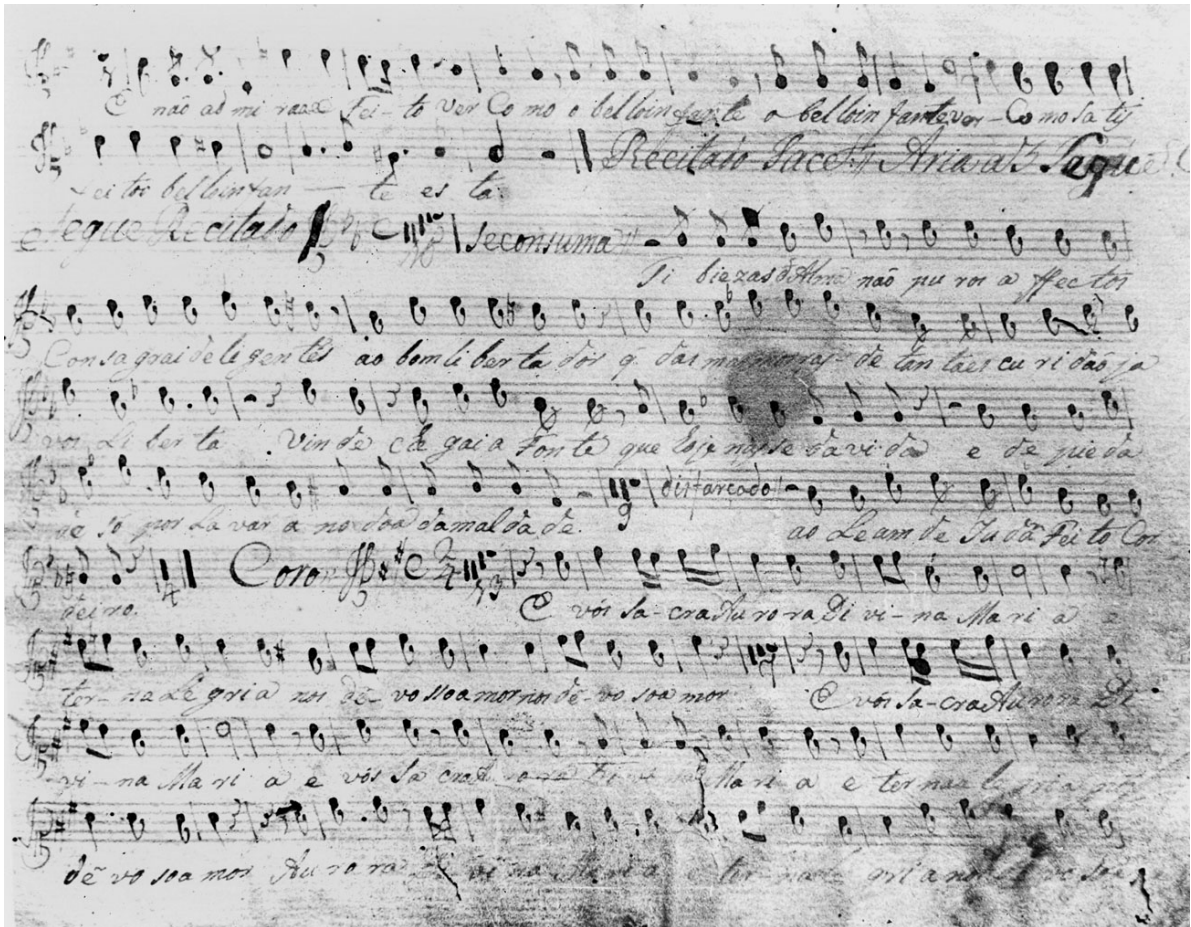 E não ad mi ra Fei-to ver Co mo o belloinfante o belloin fantever-Co mo sa tis
fei toi belloinfan - te es ta. Recitado Tacet Aria a 3 Segue
Segue Recitado 16 se consuma
Ti biezas d'Alma não pu ros a ffectos
Consagrai deligentes ao bom li berta dor q. das de tan taes cu ri dão ja
vos li ber ta Vin de che gai a Fonte que hoje nasse da vi da e de pie da
de só por La var a no doa da mal da de. 9 disfarcado ao Leam de Ju dá Fei to Cor
deiro. 4 Coro 2 4 13 E vós Sa-cra Au ro ra Di vi-na Ma ri a e
ter-na Le gria nos dê-vo ssoamor nos dê-vo soa mor E vós Sa-cra Au ro ra Di
-vi-na Ma ri a e vós Sa cra Au ro-ra Di vi na Ma ri a e ter na
dê vo soa mor Au ro ra vi na Ma ri a e ter-na gri a nos vo soa